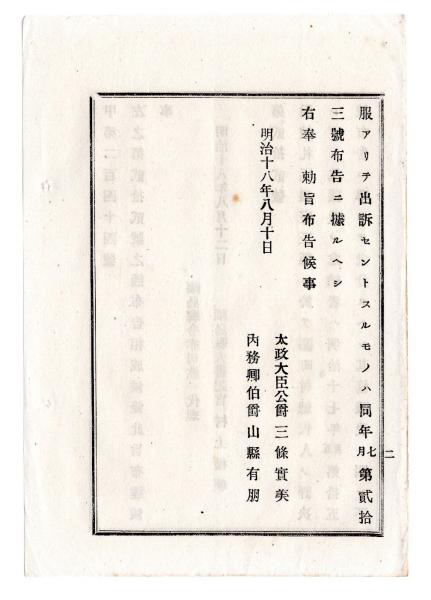 服アリテ出訴セントスルモノハ同年七月第貳拾
三號布告ニ據ルヘシ
右奉 勅旨布告候事
明治十八年八月十日
太政大臣公爵三條實美
內務卿伯爵山縣有朋
二